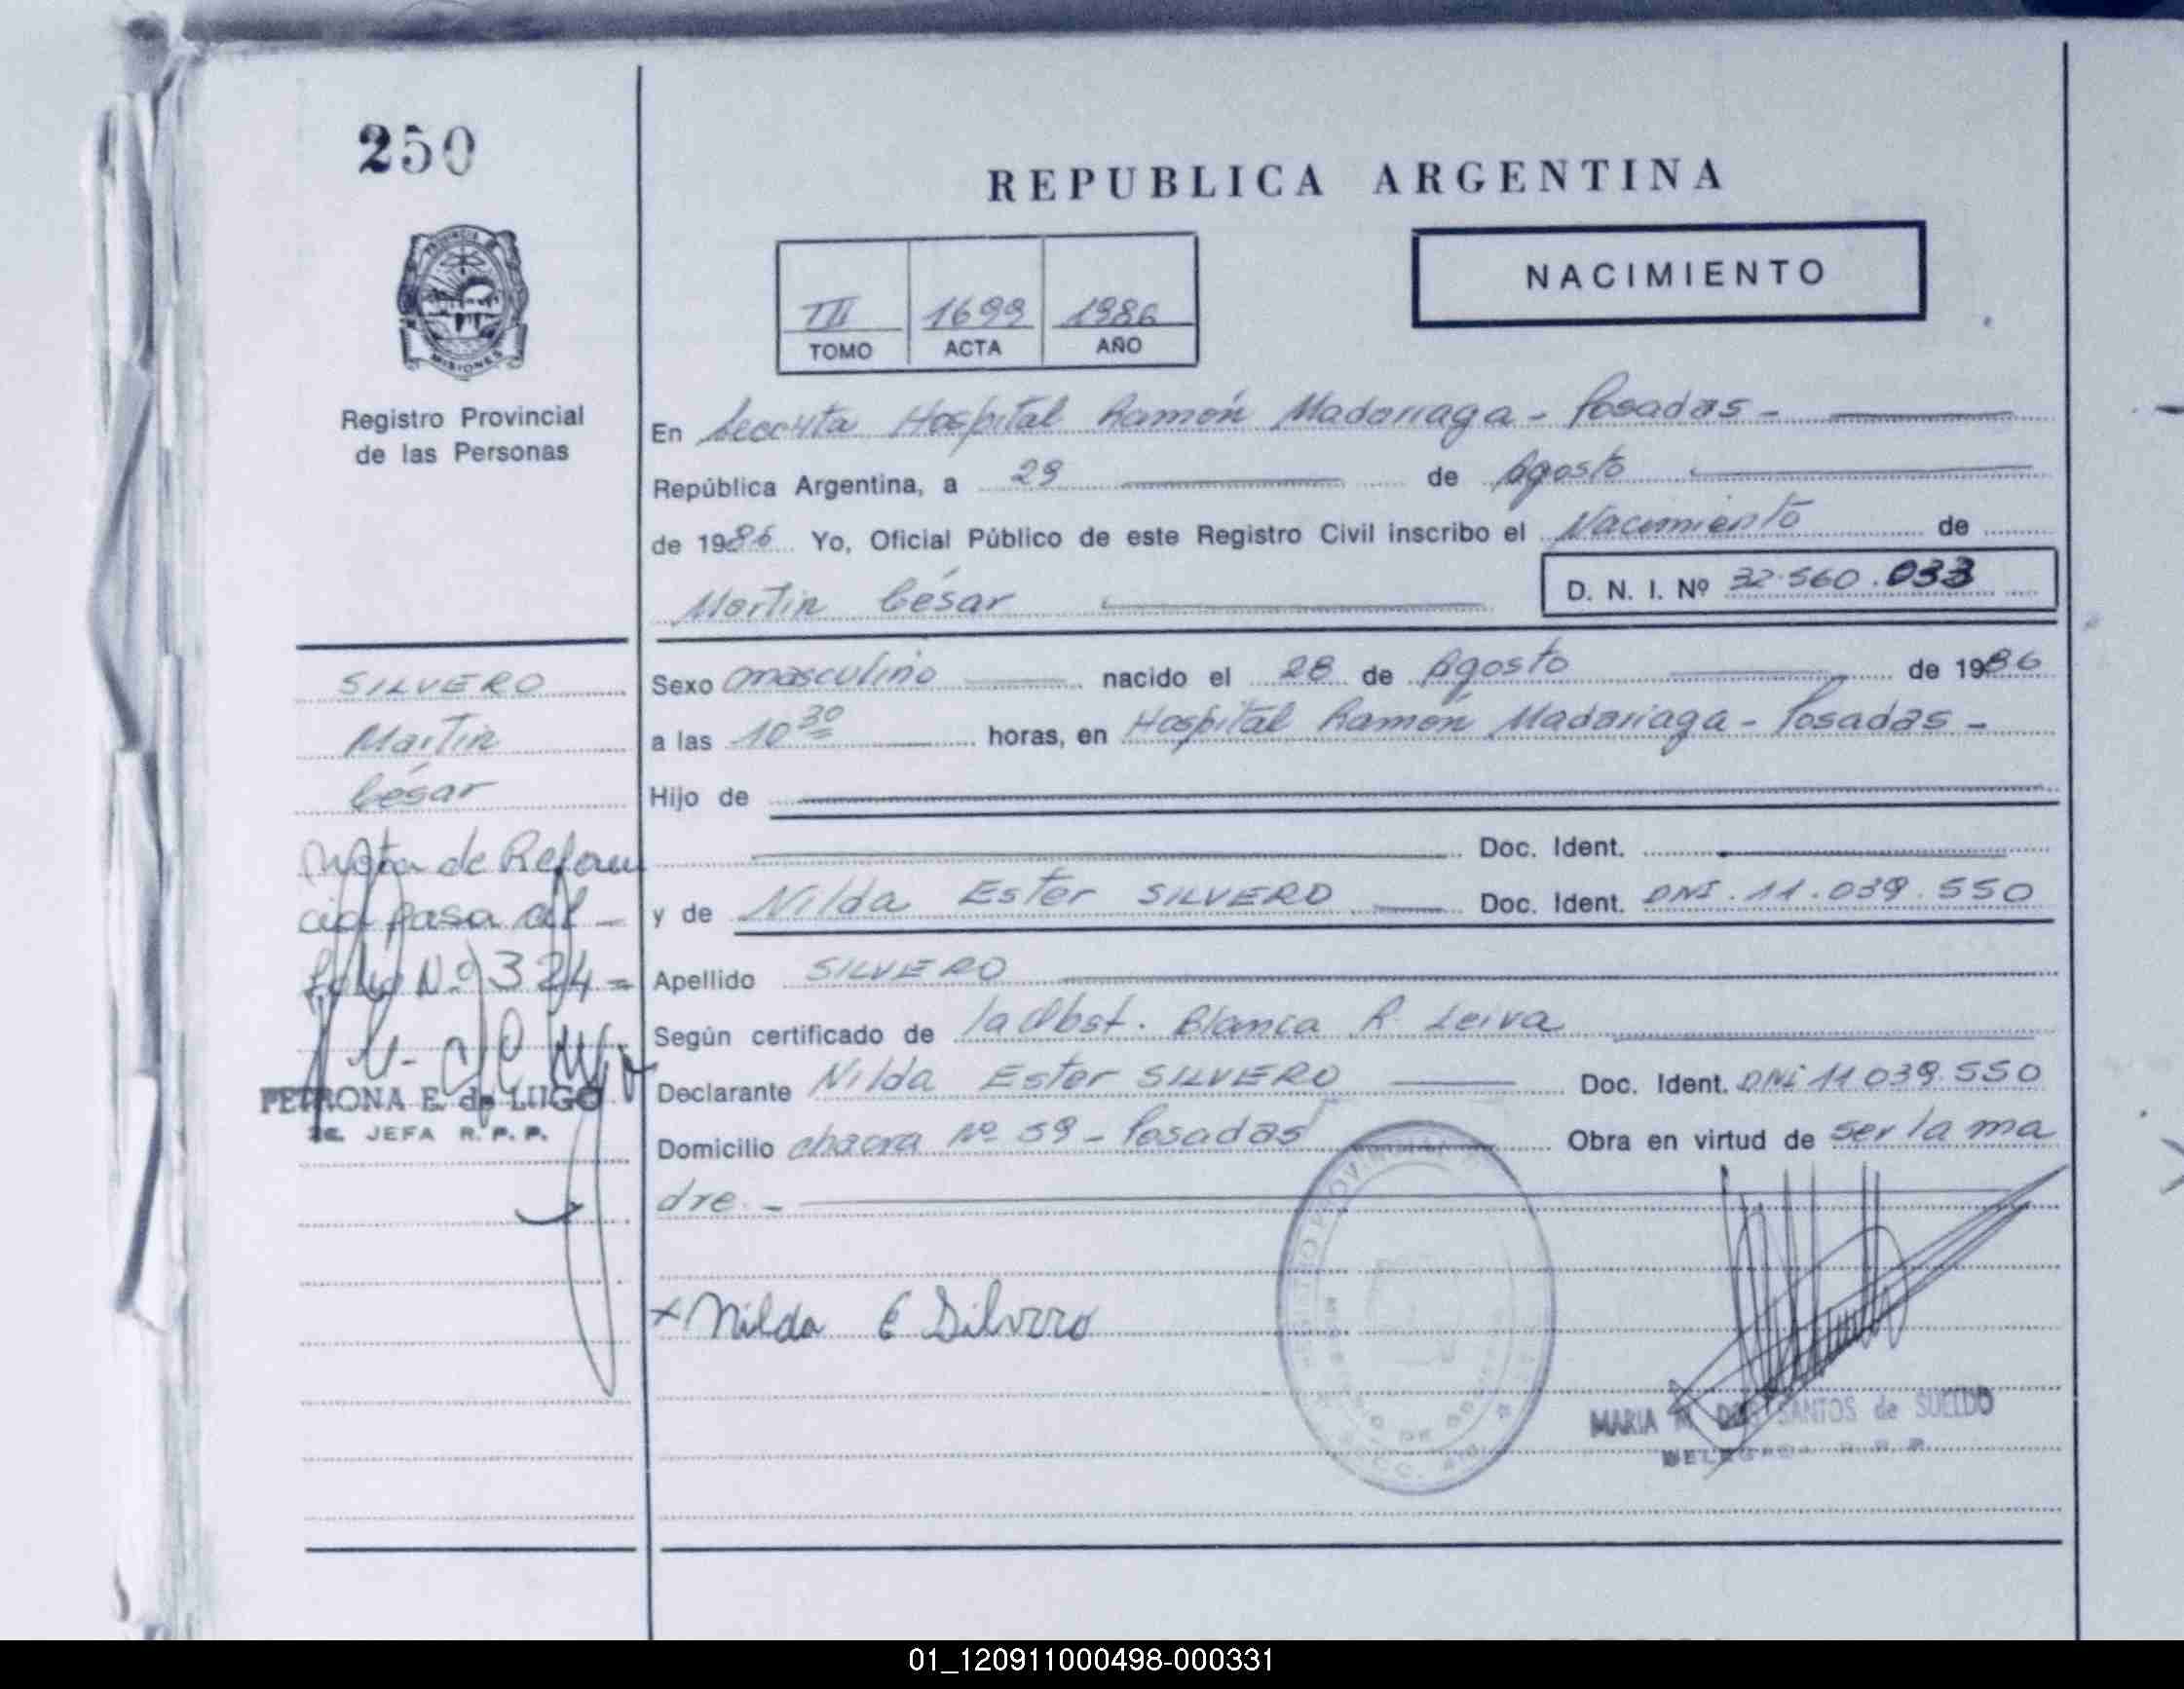 250
REPUBLICA ARGENTINA
PROVINCIA DE
MISIONES
Registro Provincial
de las Personas
III 1699 1986
TOMO ACTA AÑO
NACIMIENTO
En Seccita Hospital Ramón Madariaga - Posadas -
República Argentina, a 29 de Agosto
de 1986 Yo, Oficial Público de este Registro Civil inscribo el Nacimiento de
Martin César D. N. I. Nº 32.560.033
SILVERO
Martin
César
Nota de Referen
cia pasa al -
folio Nº 324 =
PETRONA E. de LUGO
JEFA R. P. P.
Sexo masculino nacido el 28 de Agosto de 1986
a las 10 30 horas, en Hospital Ramón Madariaga - Posadas -
Hijo de
Doc. Ident.
y de Nilda Ester SILVERO Doc. Ident. DNI. 11.039.550
Apellido SILVERO
Según certificado de la Obst. Blanca R Leiva
Declarante Nilda Ester SILVERO Doc. Ident. DNI 11 039.550
Domicilio chacra Nº 59 - Posadas Obra en virtud de ser la ma
dre. -
x Nilda E Silvero
MARIA M. DOS SANTOS de SUELDO
DELEGADA R. R. P.
01_120911000498-000331